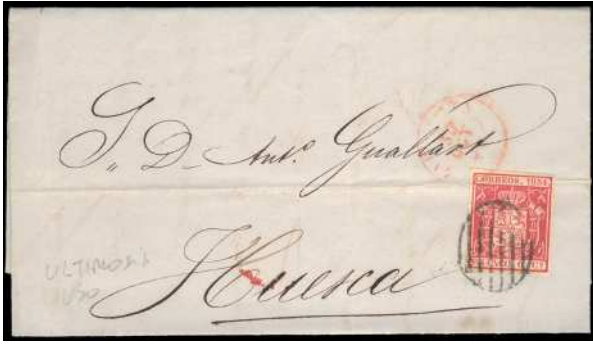 S. D. Antº Guallart
CORREOS. 1854.
Huesca
ULTIMO DIA
USO